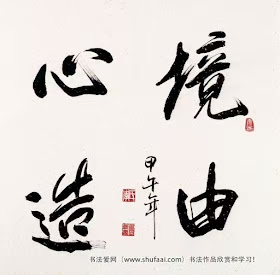 境由
心造
甲午年
书法爱网（www.shufaai.com）书法作品欣赏和学习！